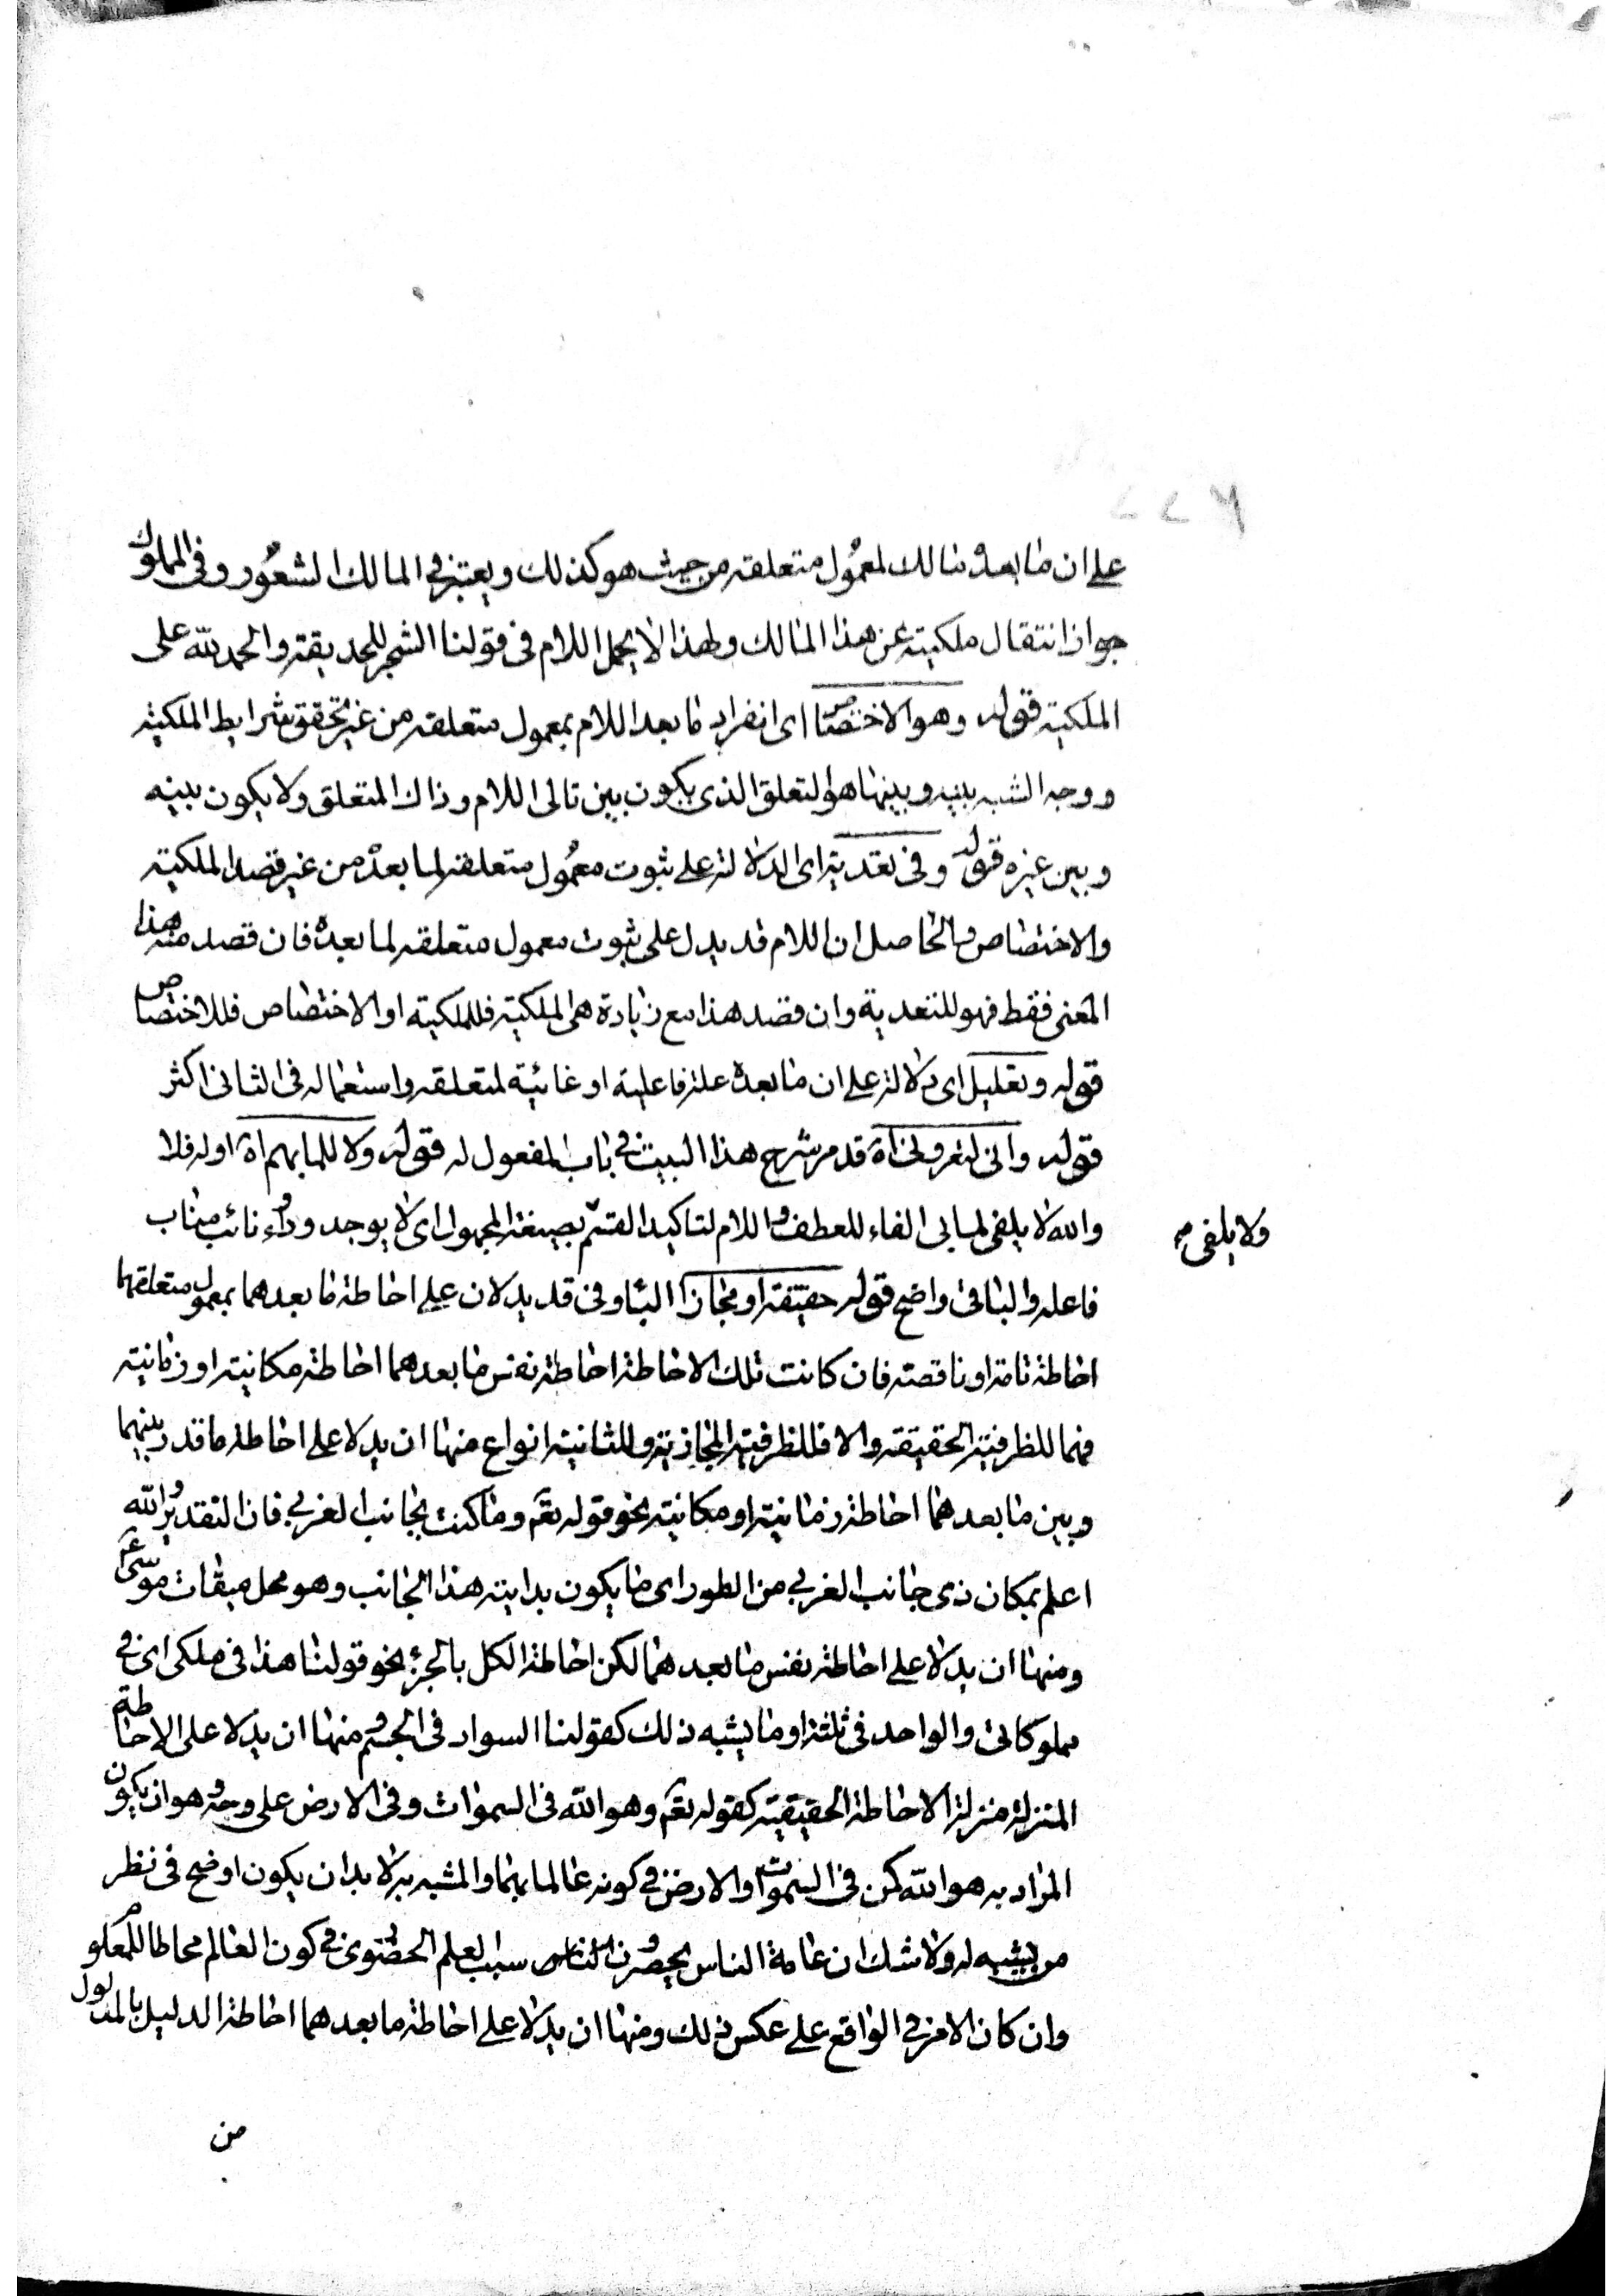 على ان ما بعده مالك لمعمول متعلقه من حيث هو كذلك ويعتبر في المالك الشعور وفي المملوك
جواز انتقال ملكيته عن هذا المالك ولهذا لا يحمل اللام في قولنا الشجر للحديقة والحمد لله على
الملكية قوله وهو الاختصاص اى انفراد ما بعد اللام بمعمول متعلقه من غير تحقق شرايط الملكية
ووجه الشبه بينه وبينها هو التعلق الذى يكون بين تالى اللام وذاك المتعلق ولا يكون بينه
وبين غيره قوله وفى تعدية اى الدلالة على ثبوت معمول متعلقه لما بعده من غير قصد الملكية
والاختصاص والحاصل ان اللام قد يدل على ثبوت معمول متعلقه لما بعده فان قصد منه هذا
المعنى فقط فهو للتعدية وان قصد هذا مع زيادة هى الملكية فللملكية او الاختصاص فللاختصاص
قوله وتعليل اى دلالة على ان ما بعده علة فاعلية او غائية لمتعلقه واستعماله فى الثانى اكثر
قوله وانى لتعرونى اه قد مر شرح هذا البيت فى باب المفعول له قوله ولا للما بهم اه اوله فلا
والله لا يلفى لما بى الفاء للعطف واللام لتاكيد القسم بصيغة المجهول اى لا يوجد ودواء نائب مناب
ولا يلفى
فاعله والباقى واضح قوله حقيقة او مجازا الباء وفى قد يدلان على احاطة ما بعدهما بمعمول متعلقهما
احاطة تامة او ناقصة فان كانت تلك الاحاطة احاطة نفس ما بعدهما احاطة مكانية او زمانية
فهما للظرفية الحقيقة والا فللظرفية المجازية وللثانية انواع منها ان يدلا على احاطة ما قدر بينهما
وبين ما بعدهما احاطة زمانية او مكانية نحو قوله تعم وما كنت بجانب الغربي فان التقدير والله
اعلم بمكان ذى جانب الغربي من الطور اى ما يكون بداية هذا الجانب وهو محل ميقات موسى ع
ومنها ان يدلا على احاطة نفس ما بعدهما لكن احاطة الكل بالجزء نحو قولنا هذا فى ملكى اى فى
مملوكاتى والواحد فى ثلثة او ما يشبه ذلك كقولنا السواد فى الجسم ومنها ان يدلا على الاحاطة
المنزلة منزلة الاحاطة الحقيقية كقوله تعم وهو الله فى السموات وفى الارض على وجه وهو ان يكون
المراد به هو الله كمن فى السموات او الارض فى كونه عالما بهما والمشبه به لا بد ان يكون اوضح فى نظر
من يشبه له ولا شك ان عامة الناس يحصرون سبب العلم الحضورى فى كون العالم محاطا للمعلوم
وان كان الامر فى الواقع على عكس ذلك ومنها ان يدلا على احاطة ما بعدهما احاطة الدليل بالمدلول
من